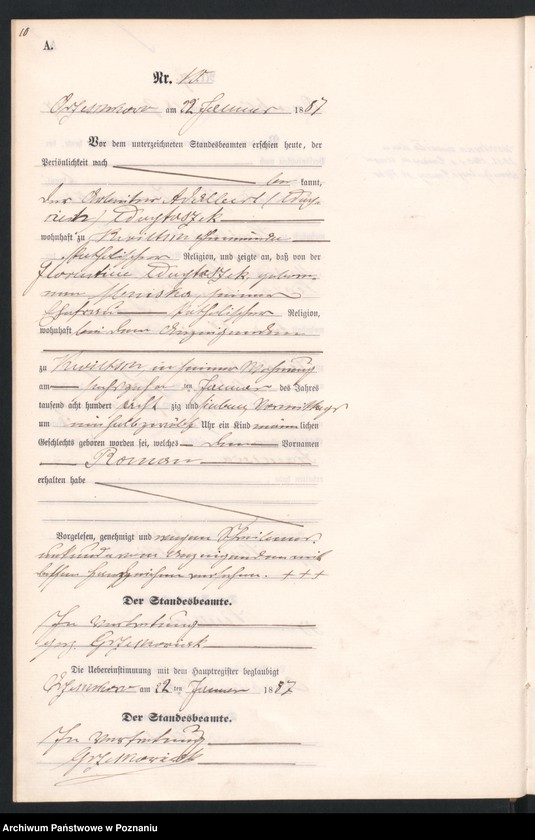 10
A.
Nr. 10
am 22 Januar 1887
Vor dem unterzeichneten Standesbeamten erschien heute, der
Persönlichkeit nach
kannt,
der Arbeiter Adalbert
wohnhaft zu Kwiltsch
katholischer Religion, und zeigte an, daß von der
Florentine gebore-
nen seiner
Ehefrau katholischer Religion,
wohnhaft bei dem Anzeigenden
zu Kwiltsch in seiner Wohnung
am sechszehn ten Januar des Jahres
tausend acht hundert acht zig und sieben Vormittags
um ein halb zwölf Uhr ein Kind männ lichen
Geschlechts geboren worden sei, welches den Vornamen
Roman
erhalten habe
Vorgelesen, genehmigt und wegen Schreibens-
unkunde vom Anzeigenden mit
dessen Handzeichen versehen. +++
Der Standesbeamte.
In Vertretung
gez. Grzeskowiak
Die Uebereinstimmung mit dem Hauptregister beglaubigt
am 22 ten Januar 1887
Der Standesbeamte.
In Vertretung
Grzeskowiak
Archiwum Państwowe w Poznaniu